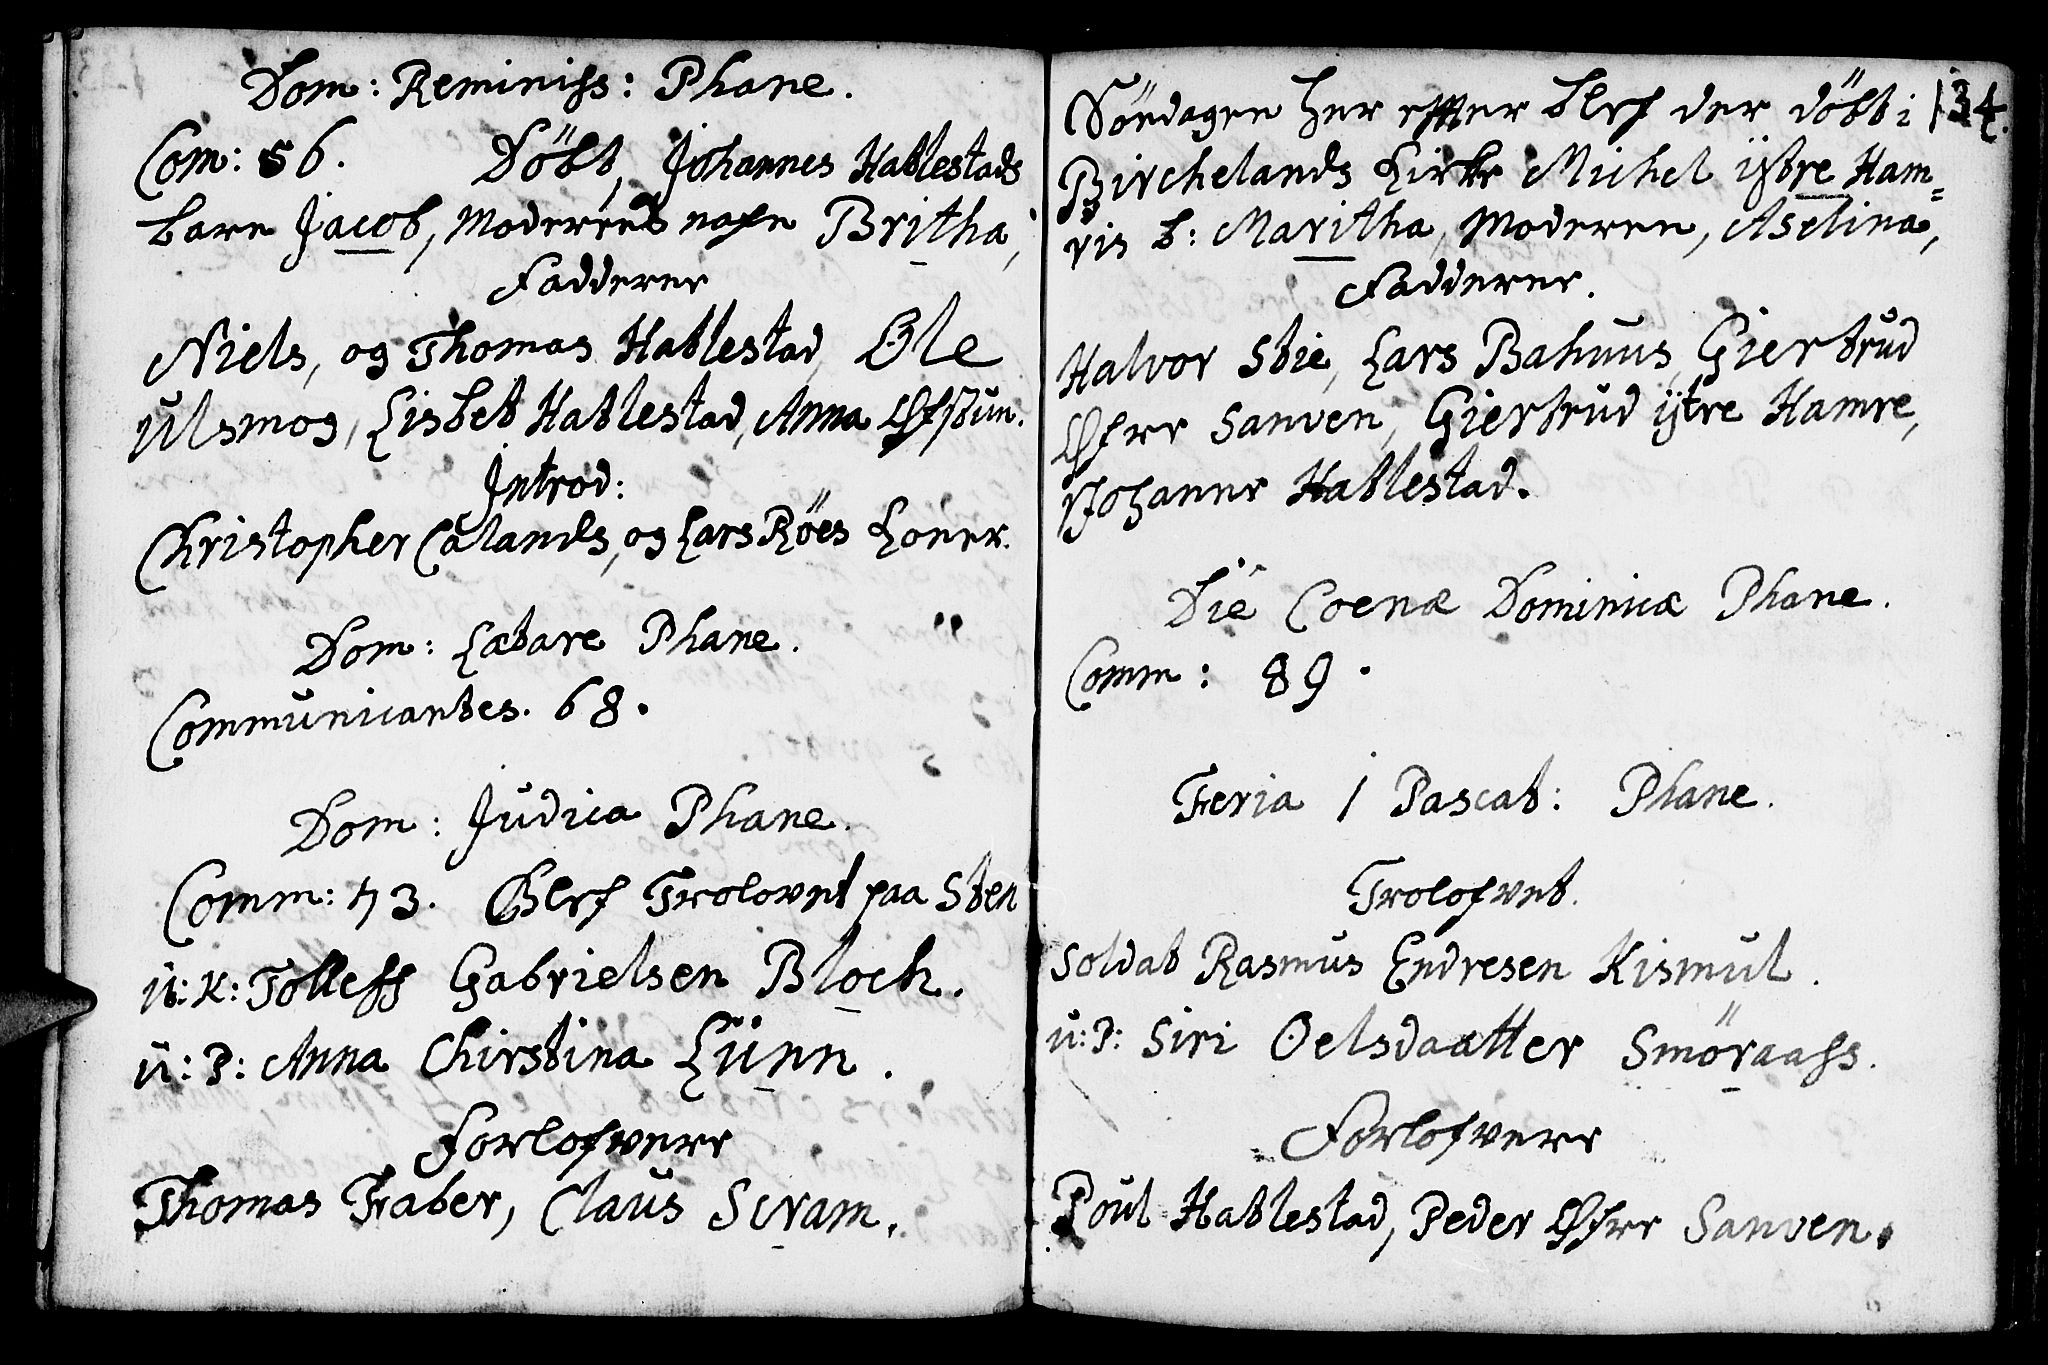 Dom: Reminiss: Phane.
Com: 56. Döbt, Johannes Hatlestads
barn Jacob, Moderens nafn Britha,
Fadderer
Niels, og Thomas Hatlestad, Ole
Ulsmog, Lisbet Hatlestad, Anna Øfstun.
Introd:
Christopher Calands, og Lars Röes Koner.
Dom: Lætare Phane.
Communicantes. 68.
Dom: Judica Phane.
Comm: 73. Blef Trolovet paa Sten
u: K: Tolless Gabrielsen Bloch.
u: P: Anna Chirstina Lunn.
Forlofvere
Thomas Fraber, Claus Scram.
134.
Söndagen her effter blef der döbt i
Birchelands Kirke Michel ÿtre Ham=
ris b: Maritha, Moderen, Aselina,
Fadderer.
Halvor Stie, Lars Bahuus, Giertrud
Øfre Sanven, Giertrud ÿtre Hamre,
Johanne Hatlestad.
Die Coenæ Dominicæ Phane.
Comm: 89.
Feria 1 Pascat: Phane.
Trolofvet.
Soldat Rasmus Endresen Kismul.
u: P: Siri Oelsdaatter Smöraass.
Forlofvere
Poul Hatlestad, Peder Øfre Sanven.